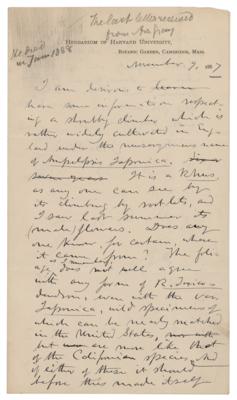 The last letter received
from Asa Gray
He died
in June 1888
Herbarium of Harvard University,
Botanic Garden, Cambridge, Mass.
November 9, 1887
I am desirous to learn
have some information respect-
ing a shrubby climber which is
rather widely cultivated in Eng-
land under the name of
of Ampelopsis Japonica.
It is a Rhus
as any one can see by
its climbing by rootlets, and
I saw last summer its
male flowers. Does any
one know, for certain, where
it came from? The foli-
age does not well agree
with any form of R. Toxico-
dendron, even with the var.
Japonica, wild specimens of
which can be nearly matched
in the United States,
but are more like that
of the Californian species. And
if either of these it should
before this made itself